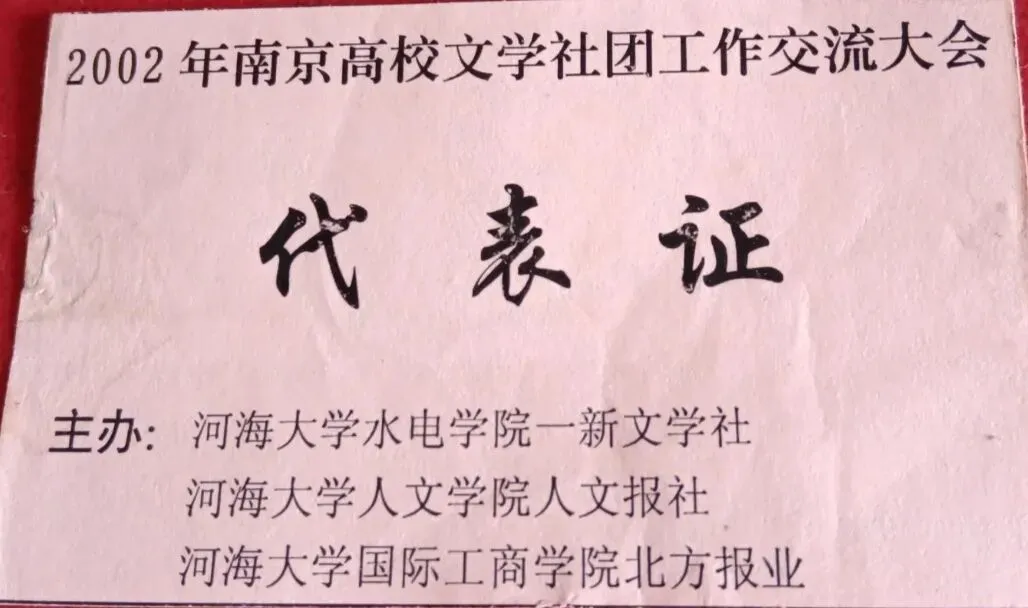 2002年南京高校文学社团工作交流大会
代表证
主办：河海大学水电学院一新文学社
河海大学人文学院人文报社
河海大学国际工商学院北方报业